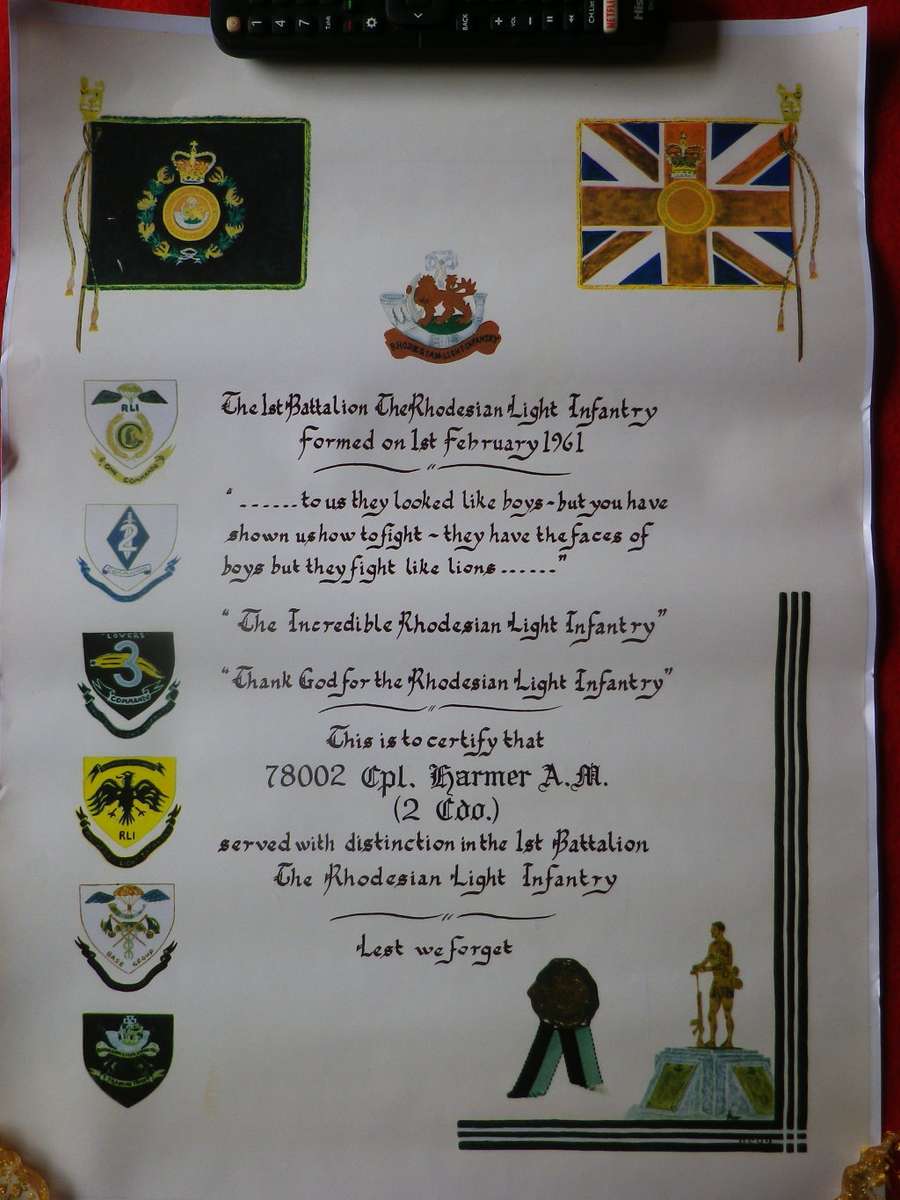 1 4 7
BACK
+ VOL -
CH List
NETFLIX
RHODESIAN LIGHT INFANTRY
RLI
ONE COMMANDO
The 1st Battalion The Rhodesian Light Infantry
formed on 1st february 1961
" ...... to us they looked like boys - but you have
shown us how to fight ~ they have the faces of
boys but they fight like lions ......"
2
" The Incredible Rhodesian Light Infantry"
LOVERS
3
COMMANDO
"Thank God for the Rhodesian Light Infantry"
This is to certify that
78002 Cpl. Harmer A.M.
(2 Cdo.)
RLI
served with distinction in the 1st Battalion
The Rhodesian Light Infantry
BASE GROUP
Lest we forget
TRAINING TROOP